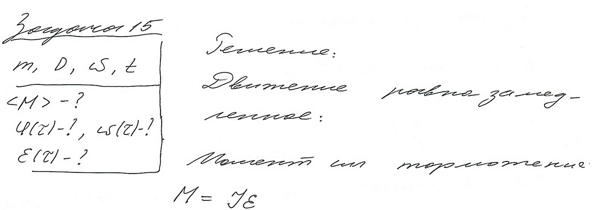 Задача 15
m, D, ω, t
<M> - ?
φ(τ) - ?, ω(τ) - ?
ε(τ) - ?
Решение:
Движение равнозамед-
ленное:
Момент сил торможения:
M = Jε